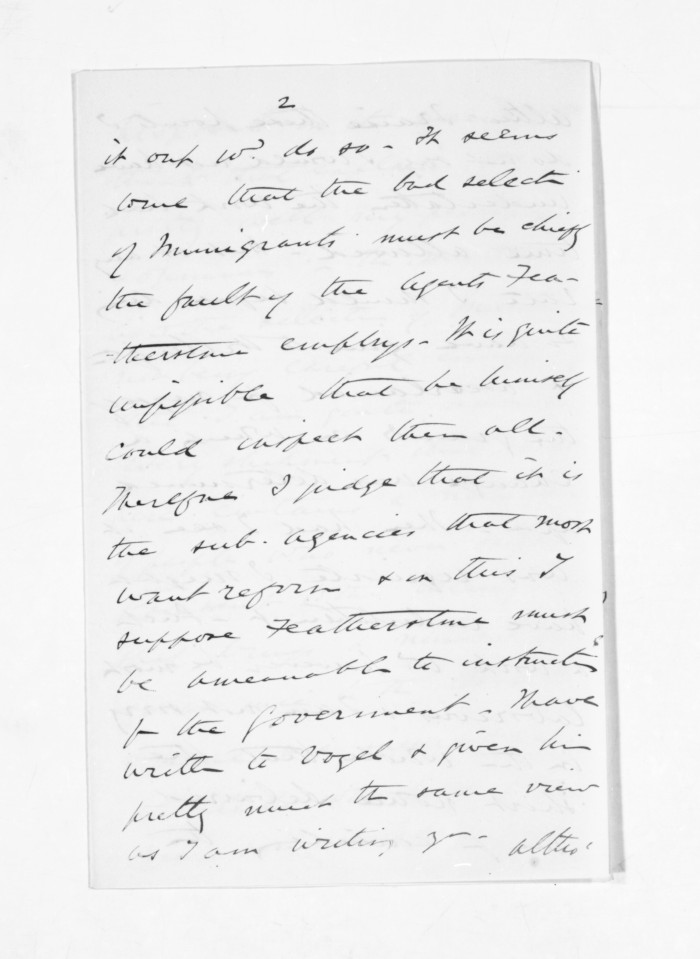 2
it out wd. do so - It seems
to me that the bad select
of Immigrants must be chiefly
the fault of the Agents Fea-
-therstone employs - It is quite
impossible that he himself
could inspect them all -
Therefore I judge that it is
the sub-agencies that most
want reform & in this I
suppose Featherstone must
be ameanable to instructn
fr the Government - I have
written to Vogel & given him
pretty much the same view
as I am writing yr - altho'